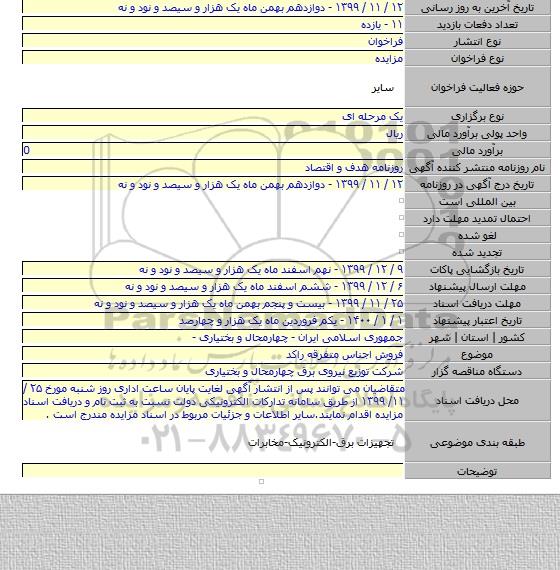 تاریخ آخرین به روز رسانی ۱۲ / ۱۱ / ۱۳۹۹ - دوازدهم بهمن ماه یک هزار و سیصد و نود و نه
تعداد دفعات بازدید ۱۱ - یازده
نوع انتشار فراخوان
نوع فراخوان مزایده
حوزه فعالیت فراخوان سایر
نوع برگزاری یک مرحله ای
واحد پولی برآورد مالی ریال
برآورد مالی 0
نام روزنامه منتشر کننده آگهی روزنامه هدف و اقتصاد
تاریخ درج آگهی در روزنامه ۱۲ / ۱۱ / ۱۳۹۹ - دوازدهم بهمن ماه یک هزار و سیصد و نود و نه
بین المللی است
احتمال تمدید مهلت دارد
لغو شده
تجدید شده
تاریخ بازگشایی پاکات ۹ / ۱۲ / ۱۳۹۹ - نهم اسفند ماه یک هزار و سیصد و نود و نه
مهلت ارسال پیشنهاد ۶ / ۱۲ / ۱۳۹۹ - ششم اسفند ماه یک هزار و سیصد و نود و نه
مهلت دریافت اسناد ۲۵ / ۱۱ / ۱۳۹۹ - بیست و پنجم بهمن ماه یک هزار و سیصد و نود و نه
تاریخ اعتبار پیشنهاد ۱ / ۱ / ۱۴۰۰ - یکم فروردین ماه یک هزار و چهارصد
کشور | استان | شهر جمهوری اسلامی ایران - چهارمحال و بختیاری -
موضوع فروش اجناس متفرقه راکد
دستگاه مناقصه گزار شرکت توزیع نیروی برق چهارمحال و بختیاری
محل دریافت اسناد متقاضیان می توانند پس از انتشار آگهی لغایت پایان ساعت اداری روز شنبه مورخ ۲۵ /
۱۱/ ۱۳۹۹ از طریق سامانه تدارکات الکترونیکی دولت نسبت به ثبت نام و دریافت اسناد
مزایده اقدام نمایند.سایر اطلاعات و جزئیات مربوط در اسناد مزایده مندرج است .
طبقه بندی موضوعی تجهیزات برق-الکترونیک-مخابرات
توضیحات
۰۲۱-۸۸۳۴۹۶۷۰-۵